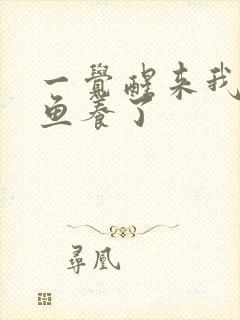 一覺醒来我
鱼养了
尋凰